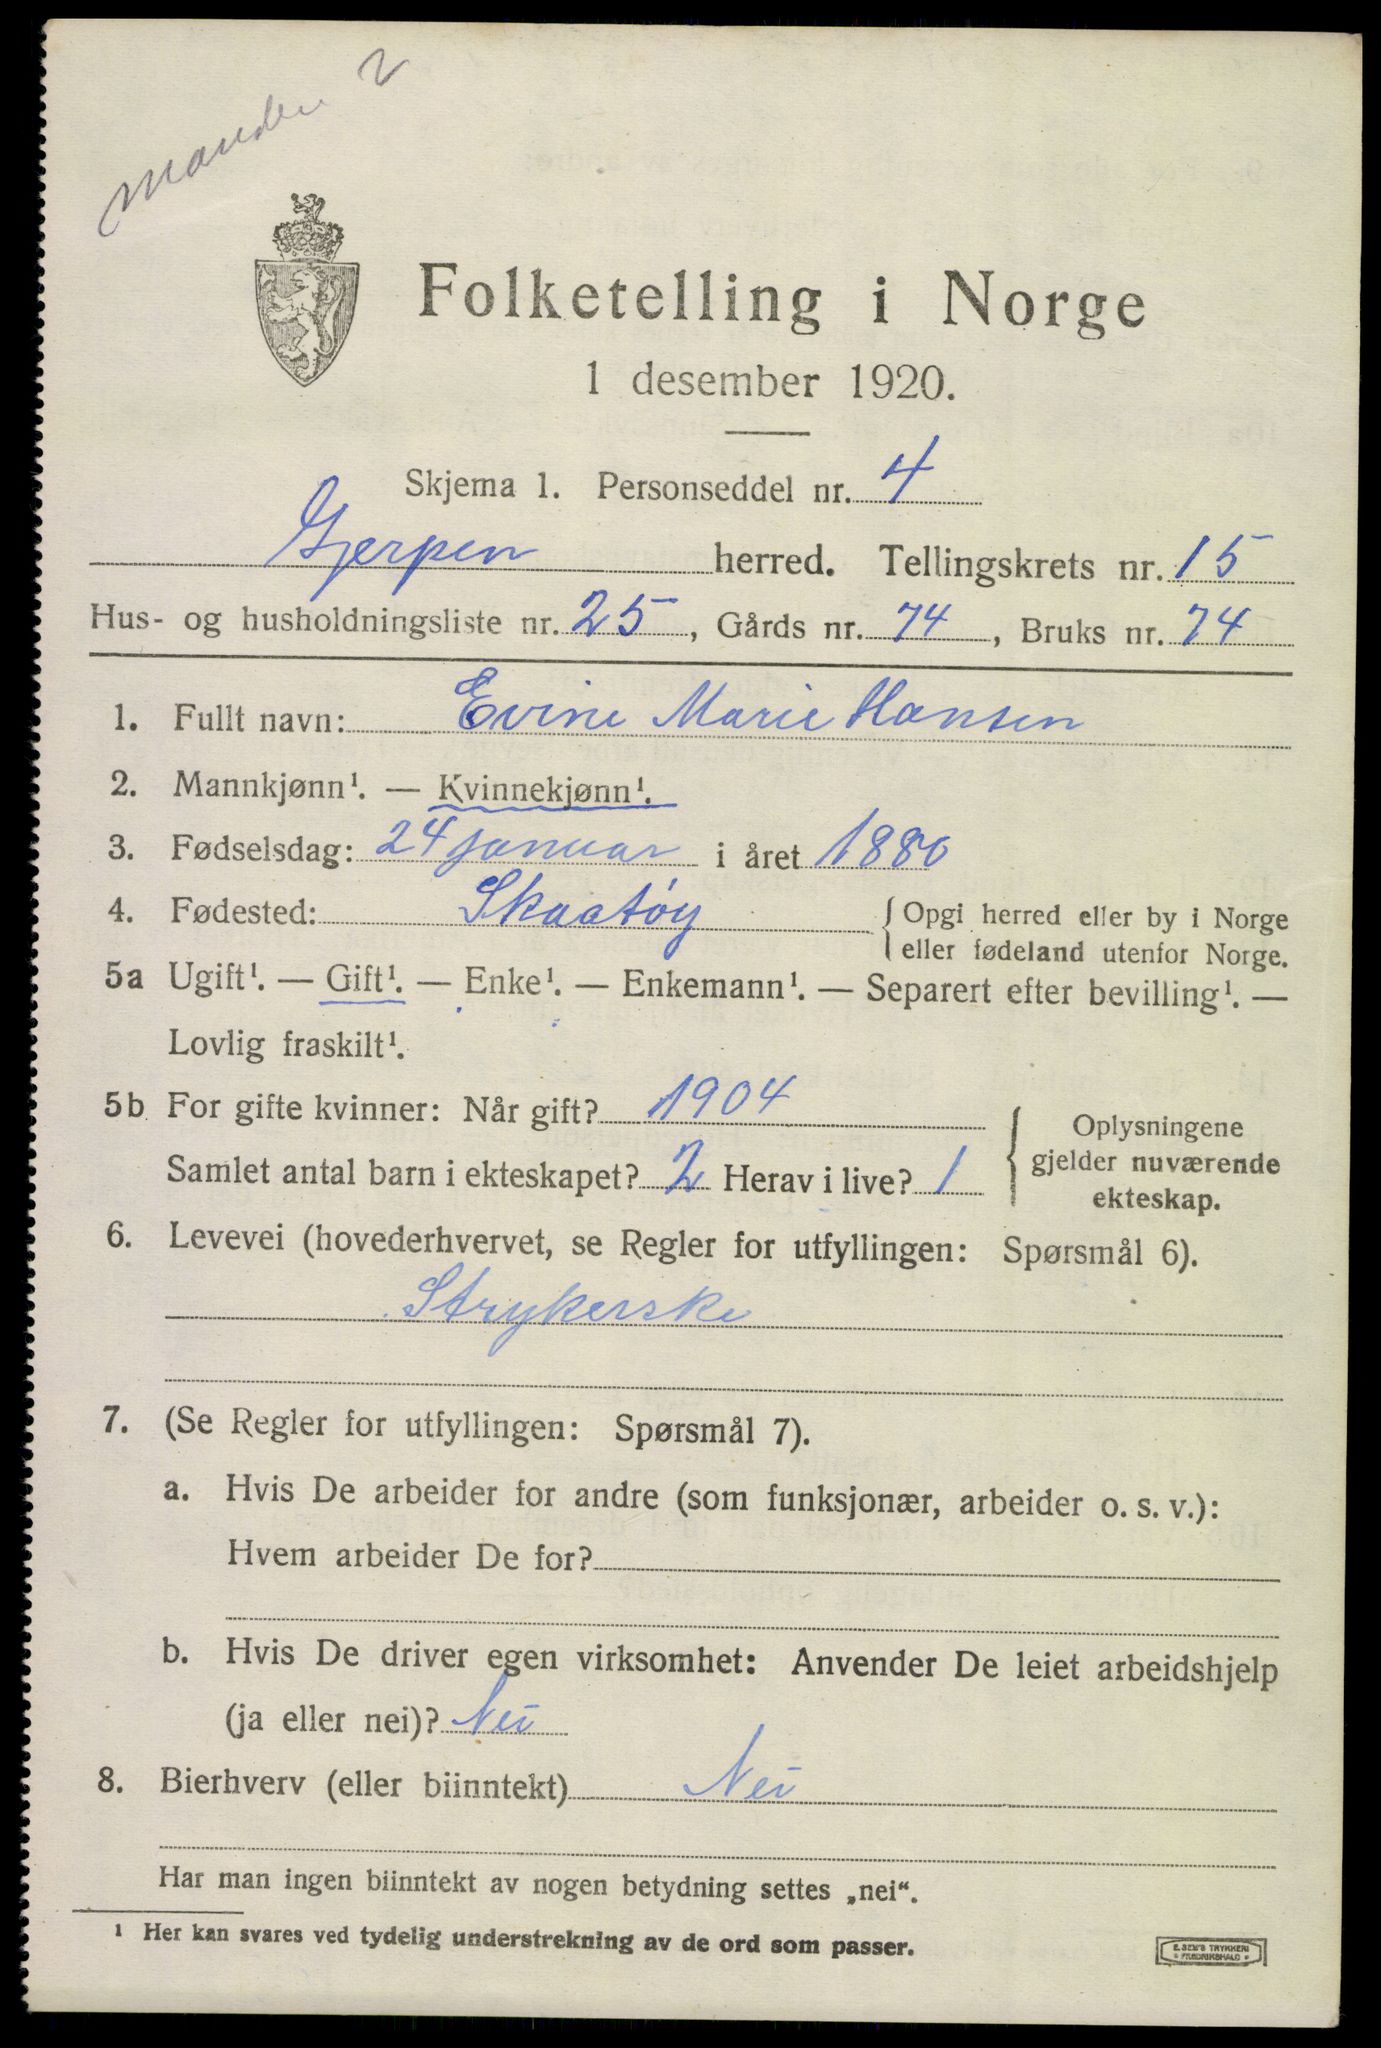 Manden 2
Folketelling i Norge
1 desember 1920.
Skjema 1. Personseddel nr. 4
Gjerpen herred. Tellingskrets nr. 15
Hus- og husholdningsliste nr. 25, Gårds nr. 74, Bruks nr. 74
1. Fullt navn: Evine Marie Hansen
2. Mannkjønn¹. — Kvinnekjønn¹.
3. Fødselsdag: 24 januar i året 1880
4. Fødested: Skaatøy { Opgi herred eller by i Norge
eller fødeland utenfor Norge.
5a Ugift¹. — Gift¹. — Enke¹. — Enkemann¹. — Separert efter bevilling¹. —
Lovlig fraskilt¹.
5b For gifte kvinner: Når gift? 1904
Samlet antal barn i ekteskapet? 2 Herav i live? 1
{ Oplysningene
gjelder nuværende
ekteskap.
6. Levevei (hovederhvervet, se Regler for utfyllingen: Spørsmål 6).
Strykerske
7. (Se Regler for utfyllingen: Spørsmål 7).
a. Hvis De arbeider for andre (som funksjonær, arbeider o. s. v.):
Hvem arbeider De for?
b. Hvis De driver egen virksomhet: Anvender De leiet arbeidshjelp
(ja eller nei)? Nei
8. Bierhverv (eller biinntekt) Nei
Har man ingen biinntekt av nogen betydning settes „nei“.
¹ Her kan svares ved tydelig understrekning av de ord som passer.
E. SEM'S TRYKKERI
FREDRIKSHALD